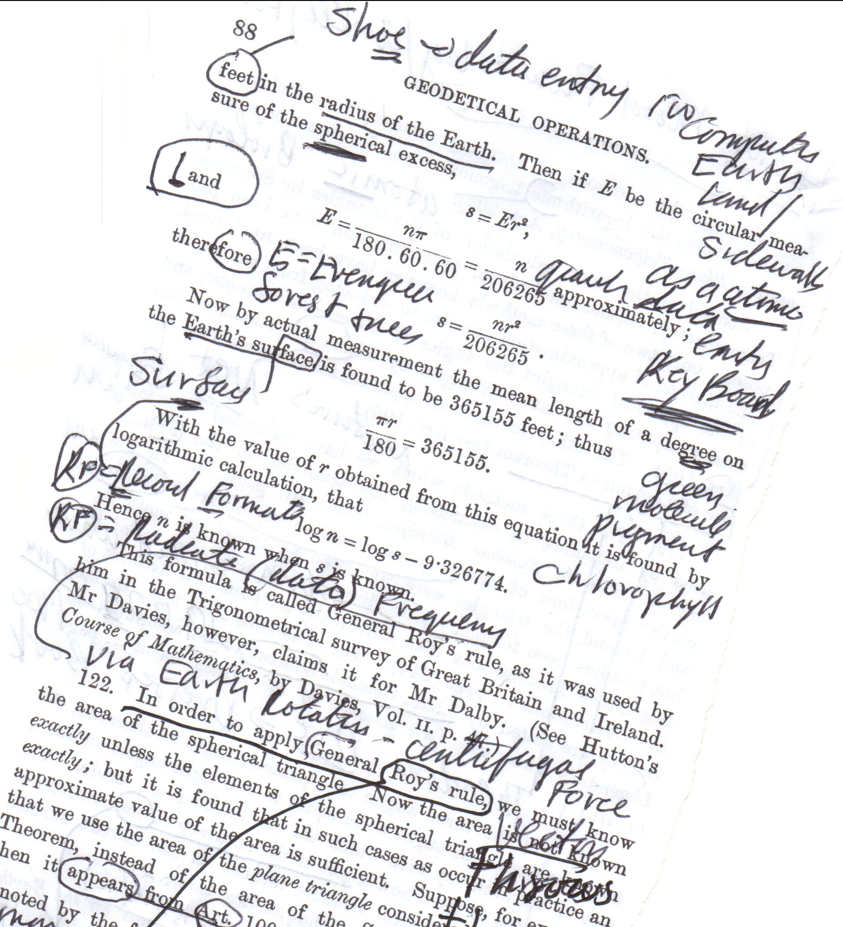 88
Shoe → data entry
GEODETICAL OPERATIONS.
computer
Earth
Land /
Sidewalk
as a atomic
data
KeyBoard
feet in the radius of the Earth. Then if E be the circular mea-
sure of the spherical excess,
s = Er²,
1 and
E = nπ / 180 . 60 . 60 = n / 206265 approximately ;
therefore
E = Evergreen
forest trees
s = nr² / 206265 .
Now by actual measurement the mean length of a degree on
the Earth's surface is found to be 365155 feet ; thus
πr / 180 = 365155.
green
molecule
pigment
chlorophyll
With the value of r obtained from this equation it is found by
logarithmic calculation, that
RF = Record Format
log n = log s − 9·326774.
Hence n is known when s is known.
RF = Radiate (data) Frequency
This formula is called General Roy's rule, as it was used by
him in the Trigonometrical survey of Great Britain and Ireland.
Mr Davies, however, claims it for Mr Dalby. (See Hutton's
Course of Mathematics, by Davies, Vol. II. p.
via Earth Rotation = centrifugal
Force
122. In order to apply General Roy's rule, we must know
the area of the spherical triangle. Now the area is not known
exactly unless the elements of the spherical triangle are known
exactly ; but it is found that in such cases as occur in practice an
approximate value of the area is sufficient. Suppose, for
that we use the area of the plane triangle
Theorem, instead of the area of the
hen it appears from Art. 109
noted by the